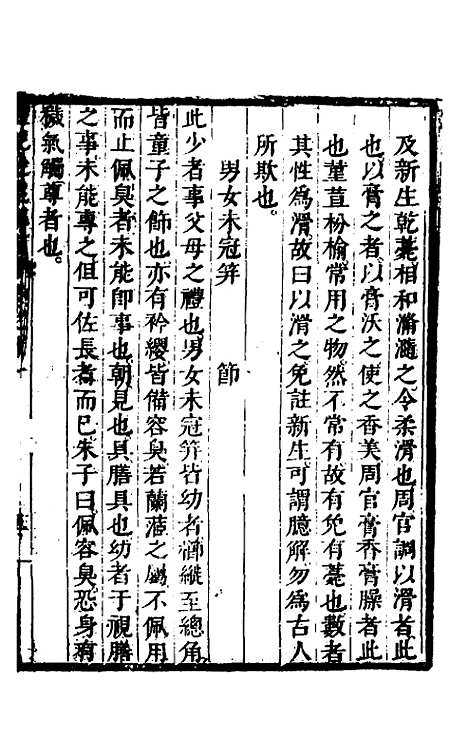 及新生乾薧相和滫瀡之令柔滑也周官調以滑者此
也以膏之者以膏沃之使之香美周官膏香膏臊者此
也堇荁枌榆常用之物然不常有故有免有薧也數者
其性為滑故曰以滑之免註新生可謂臆解勿為古人
所欺也
男女未冠笄 節
此少者事父母之禮也男女未冠笄皆幼者櫛縰至總角
皆童子之飾也亦有衿纓皆備容臭若蘭茝之屬不佩用
而止佩臭者未能即事也朝見也具膳具也幼者于視膳
之事未能專之但可佐長者而已朱子曰佩容臭恐身有
穢氣觸尊者也